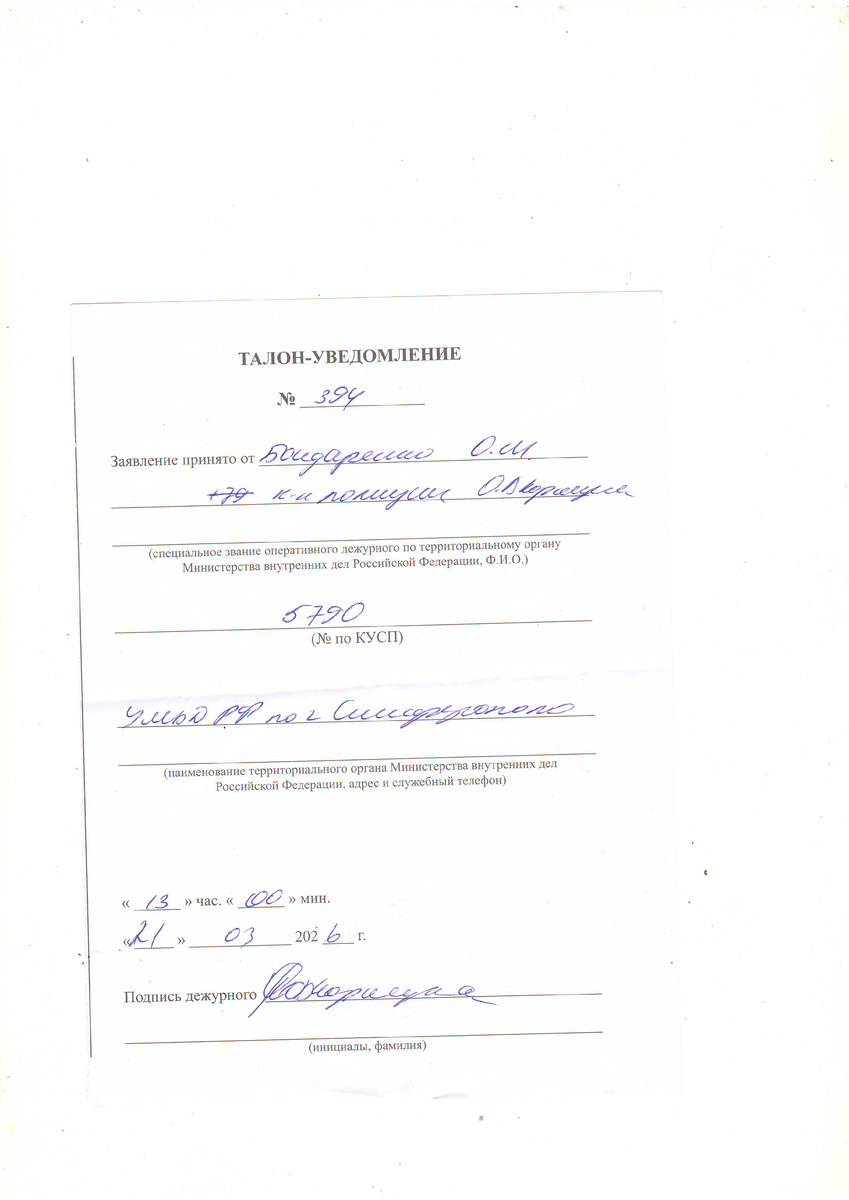 ТАЛОН-УВЕДОМЛЕНИЕ
№ 394
Заявление принято от Бондаренко О.М.
к-н полиции О.В.
(специальное звание оперативного дежурного по территориальному органу
Министерства внутренних дел Российской Федерации, Ф.И.О.)
5790
(№ по КУСП)
УМВД РФ по г Симферополю
(наименование территориального органа Министерства внутренних дел
Российской Федерации, адрес и служебный телефон)
« 13 » час. « 00 » мин.
«21 » 03 2026 г.
Подпись дежурного
(инициалы, фамилия)